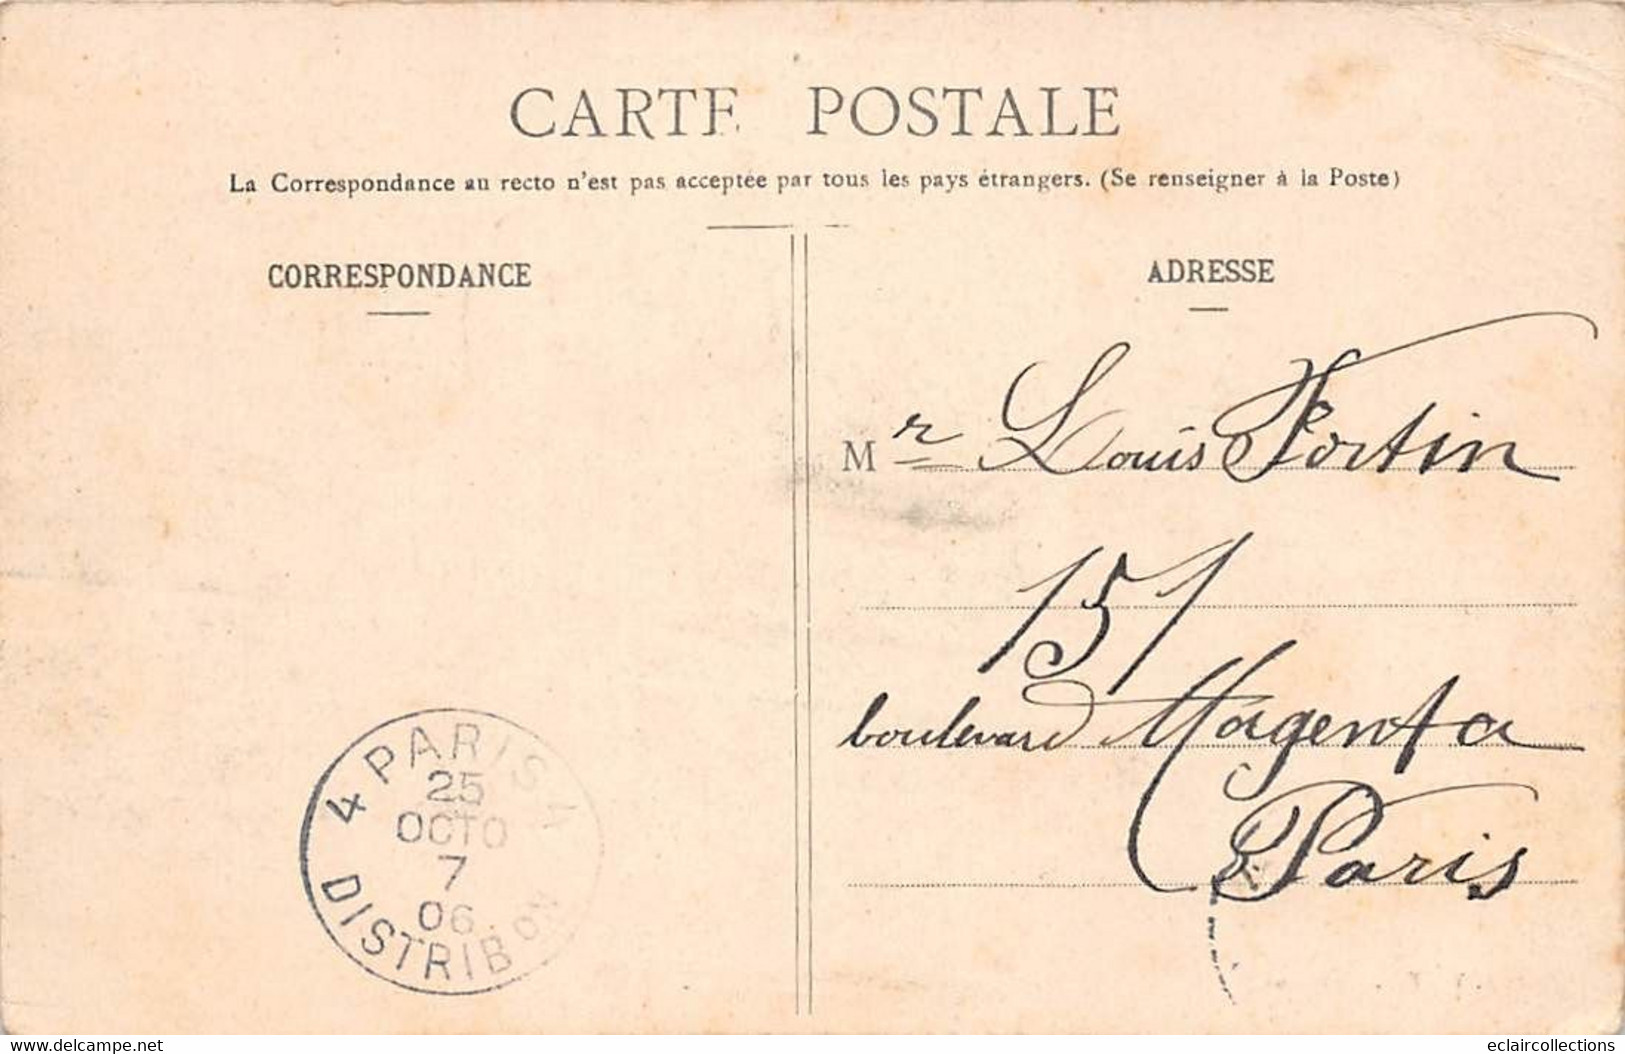 CARTE POSTALE
La Correspondance au recto n'est pas acceptée par tous les pays étrangers. (Se renseigner à la Poste)
CORRESPONDANCE
ADRESSE
Mr Louis Fortin
151
boulevard Magenta
Paris
4 PARIS 4
25
OCTO
7
06
DISTRIBON
www.delcampe.net
eclaircollections